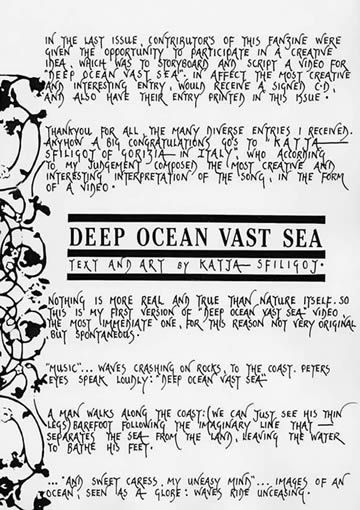 IN THE LAST ISSUE, CONTRIBUTOR'S OF THIS FANZINE WERE
GIVEN THE OPPORTUNITY TO PARTICIPATE IN A CREATIVE
IDEA, WHICH WAS TO STORYBOARD AND SCRIPT A VIDEO FOR
"DEEP OCEAN VAST SEA". IN AFFECT THE MOST CREATIVE
AND INTERESTING ENTRY, WOULD RECEIVE A SIGNED C.D,
AND ALSO HAVE THEIR ENTRY PRINTED IN THIS ISSUE.
THANKYOU FOR ALL THE MANY DIVERSE ENTRIES I RECEIVED.
ANYHOW A BIG CONGRATULATIONS GO'S TO "KATJA
SFILIGOJ OF GORIZIA - IN ITALY". WHO ACCORDING
TO MY JUDGEMENT COMPOSED THE MOST CREATIVE AND
INTERESTING INTERPRETATION OF THE SONG, IN THE FORM
OF A VIDEO.
DEEP OCEAN VAST SEA
TEXT AND ART BY KATJA SFILIGOJ.
NOTHING IS MORE REAL AND TRUE THAN NATURE ITSELF. SO
THIS IS MY FIRST VERSION OF "DEEP OCEAN VAST SEA" VIDEO,
THE MOST IMMEDIATE ONE, FOR THIS REASON NOT VERY ORIGINAL
BUT SPONTANEOUS.
"MUSIC"... WAVES CRASHING ON ROCKS, TO THE COAST. PETERS
EYES SPEAK LOUDLY: "DEEP OCEAN VAST SEA"
A MAN WALKS ALONG THE COAST: (WE CAN JUST SEE HIS THIN
LEGS) BAREFOOT FOLLOWING THE IMAGINARY LINE THAT
SEPARATES THE SEA FROM THE LAND, LEAVING THE WATER
TO BATHE HIS FEET.
..."AND SWEET CARESS MY UNEASY MIND"... IMAGES OF AN
OCEAN, SEEN AS A GLOBE: WAVES RIDE UNCEASING.